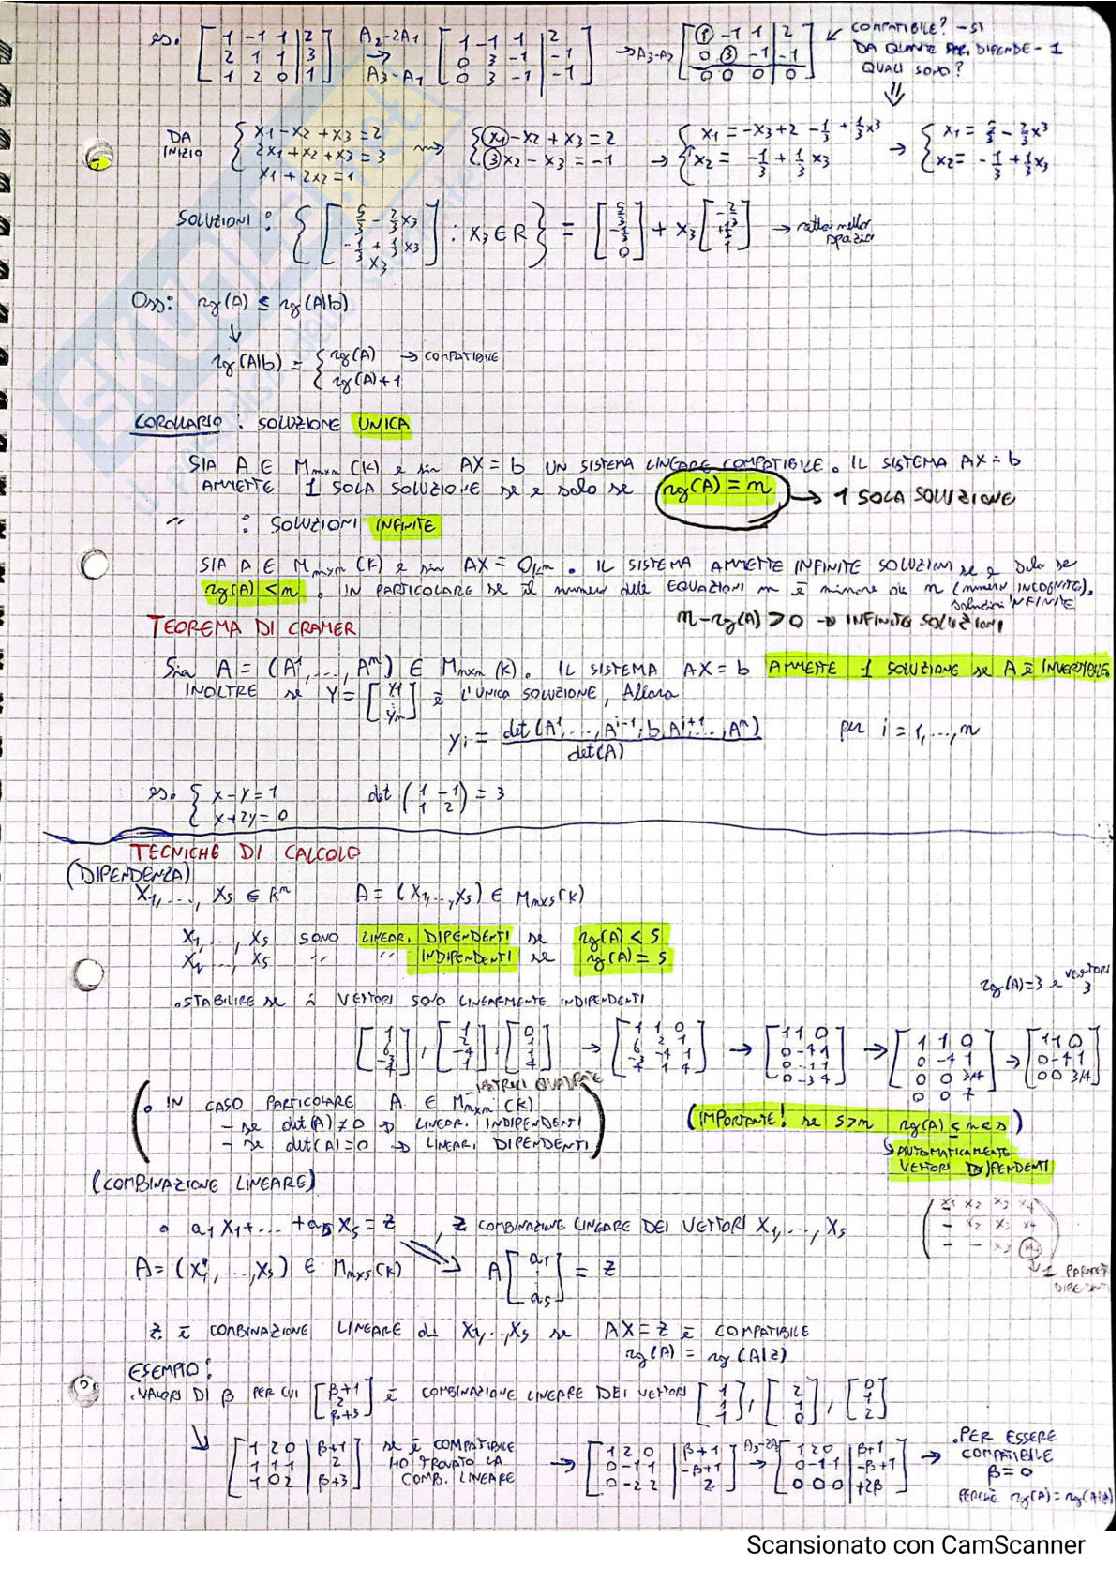 es. [1 -1 1 | 2; 2 1 1 | 3; 1 2 0 | 1] A2-2A1 → A3-A1 [1 -1 1 | 2; 0 3 -1 | -1; 0 3 -1 | -1] → A3-A2 [1 -1 1 | 2; 0 3 -1 | -1; 0 0 0 | 0]
COMPATIBILE? - SÌ
DA QUANTE PAR. DIPENDE - 1
QUALI SONO?
DA INIZIO { x1 - x2 + x3 = 2; 2x1 + x2 + x3 = 3; x1 + 2x2 = 1 → { x1 - x2 + x3 = 2; 3x2 - x3 = -1 → { x1 = -x3 + 2 - 1/3 + 1/3 x3; x2 = -1/3 + 1/3 x3 → { x1 = 5/3 - 2/3 x3; x2 = -1/3 + 1/3 x3
SOLUZIONI: { [5/3 - 2/3 x3; -1/3 + 1/3 x3; x3] : x3 ∈ R } = [5/3; -1/3; 0] + x3 [-2/3; +1/3; 1] → retta nello spazio
Oss: rg(A) ≤ rg(A|b)
↓
rg(A|b) = { rg(A) → COMPATIBILE
rg(A)+1
COROLLARIO: SOLUZIONE UNICA
SIA A ∈ Mmxn (K) e sia AX = b UN SISTEMA LINEARE COMPATIBILE. IL SISTEMA AX = b
AMMETTE 1 SOLA SOLUZIONE se e solo se rg(A) = n → 1 SOLA SOLUZIONE
" : SOLUZIONI INFINITE
SIA A ∈ Mmxn (K) e sia AX = OKm. IL SISTEMA AMMETTE INFINITE SOLUZIONI se e solo se
rg(A) < n. IN PARTICOLARE se il numero delle EQUAZIONI m è minore di n (numero INCOGNITE).
soluzioni INFINITE
n - rg(A) > 0 → INFINITE SOLUZIONI
TEOREMA DI CRAMER
Sia A = (A1, ..., An) ∈ Mnxn (K). IL SISTEMA AX = b AMMETTE 1 SOLUZIONE se A È INVERTIBILE.
INOLTRE se Y = [y1 ⋮ yn] è L'UNICA SOLUZIONE, Allora
yi = det(A1, ..., Ai-1, b, Ai+1, ..., An) / det(A) per i = 1, ..., n
es. { x - y = 1; x + 2y = 0 det (1 -1; 1 2) = 3
TECNICHE DI CALCOLO
(DIPENDENZA)
X1, ..., Xs ∈ Rn A = (X1, ..., Xs) ∈ Mnxs(K)
X1, ..., Xs SONO LINEAR. DIPENDENTI se rg(A) < s
X1, ..., Xs " " INDIPENDENTI se rg(A) = s
. STABILIRE se i VETTORI SONO LINEARMENTE INDIPENDENTI
rg(A)=3 e vettori 3
→ [1 1 0; 0 -1 1; 0 0 3/4]
. IN CASO PARTICOLARE A ∈ Mnxn (K) MATRICI QUADRATE
- se det(A) ≠ 0 → LINEAR. INDIPENDENTI
- se det(A) = 0 → LINEARI DIPENDENTI
(IMPORTANTE! se s>n rg(A) ≤ n < s)
↳ AUTOMATICAMENTE
VETTORI DIPENDENTI
(COMBINAZIONE LINEARE)
. a1 X1 + ... + as Xs = Z, Z COMBINAZIONE LINEARE DEI VETTORI X1, ..., Xs
A = (X1, ..., Xs) ∈ Mnxs(K) → A [a1 ⋮ as] = Z
1 PARAMET
Z È COMBINAZIONE LINEARE di X1, ..., Xs se AX = Z È COMPATIBILE
rg(A) = rg(A|z)
ESEMPIO:
. VALORI DI β PER CUI [β+1; 2; β+3] È COMBINAZIONE LINEARE DEI VETTORI [1; 1; 1], [2; 1; 0], [0; 1; 2]
↘ [1 2 0 | β+1; 1 1 1 | 2; 1 0 2 | β+3] SE È COMPATIBILE HO TROVATO LA COMB. LINEARE → [1 2 0 | β+1; 0 -1 1 | -β+1; 0 -2 2 | 2] A3-2A2 → [1 2 0 | β+1; 0 -1 1 | -β+1; 0 0 0 | +2β] →
. PER ESSERE
COMPATIBILE
β = 0
PERCHÈ rg(A) = rg(A|z)
Scansionato con CamScanner